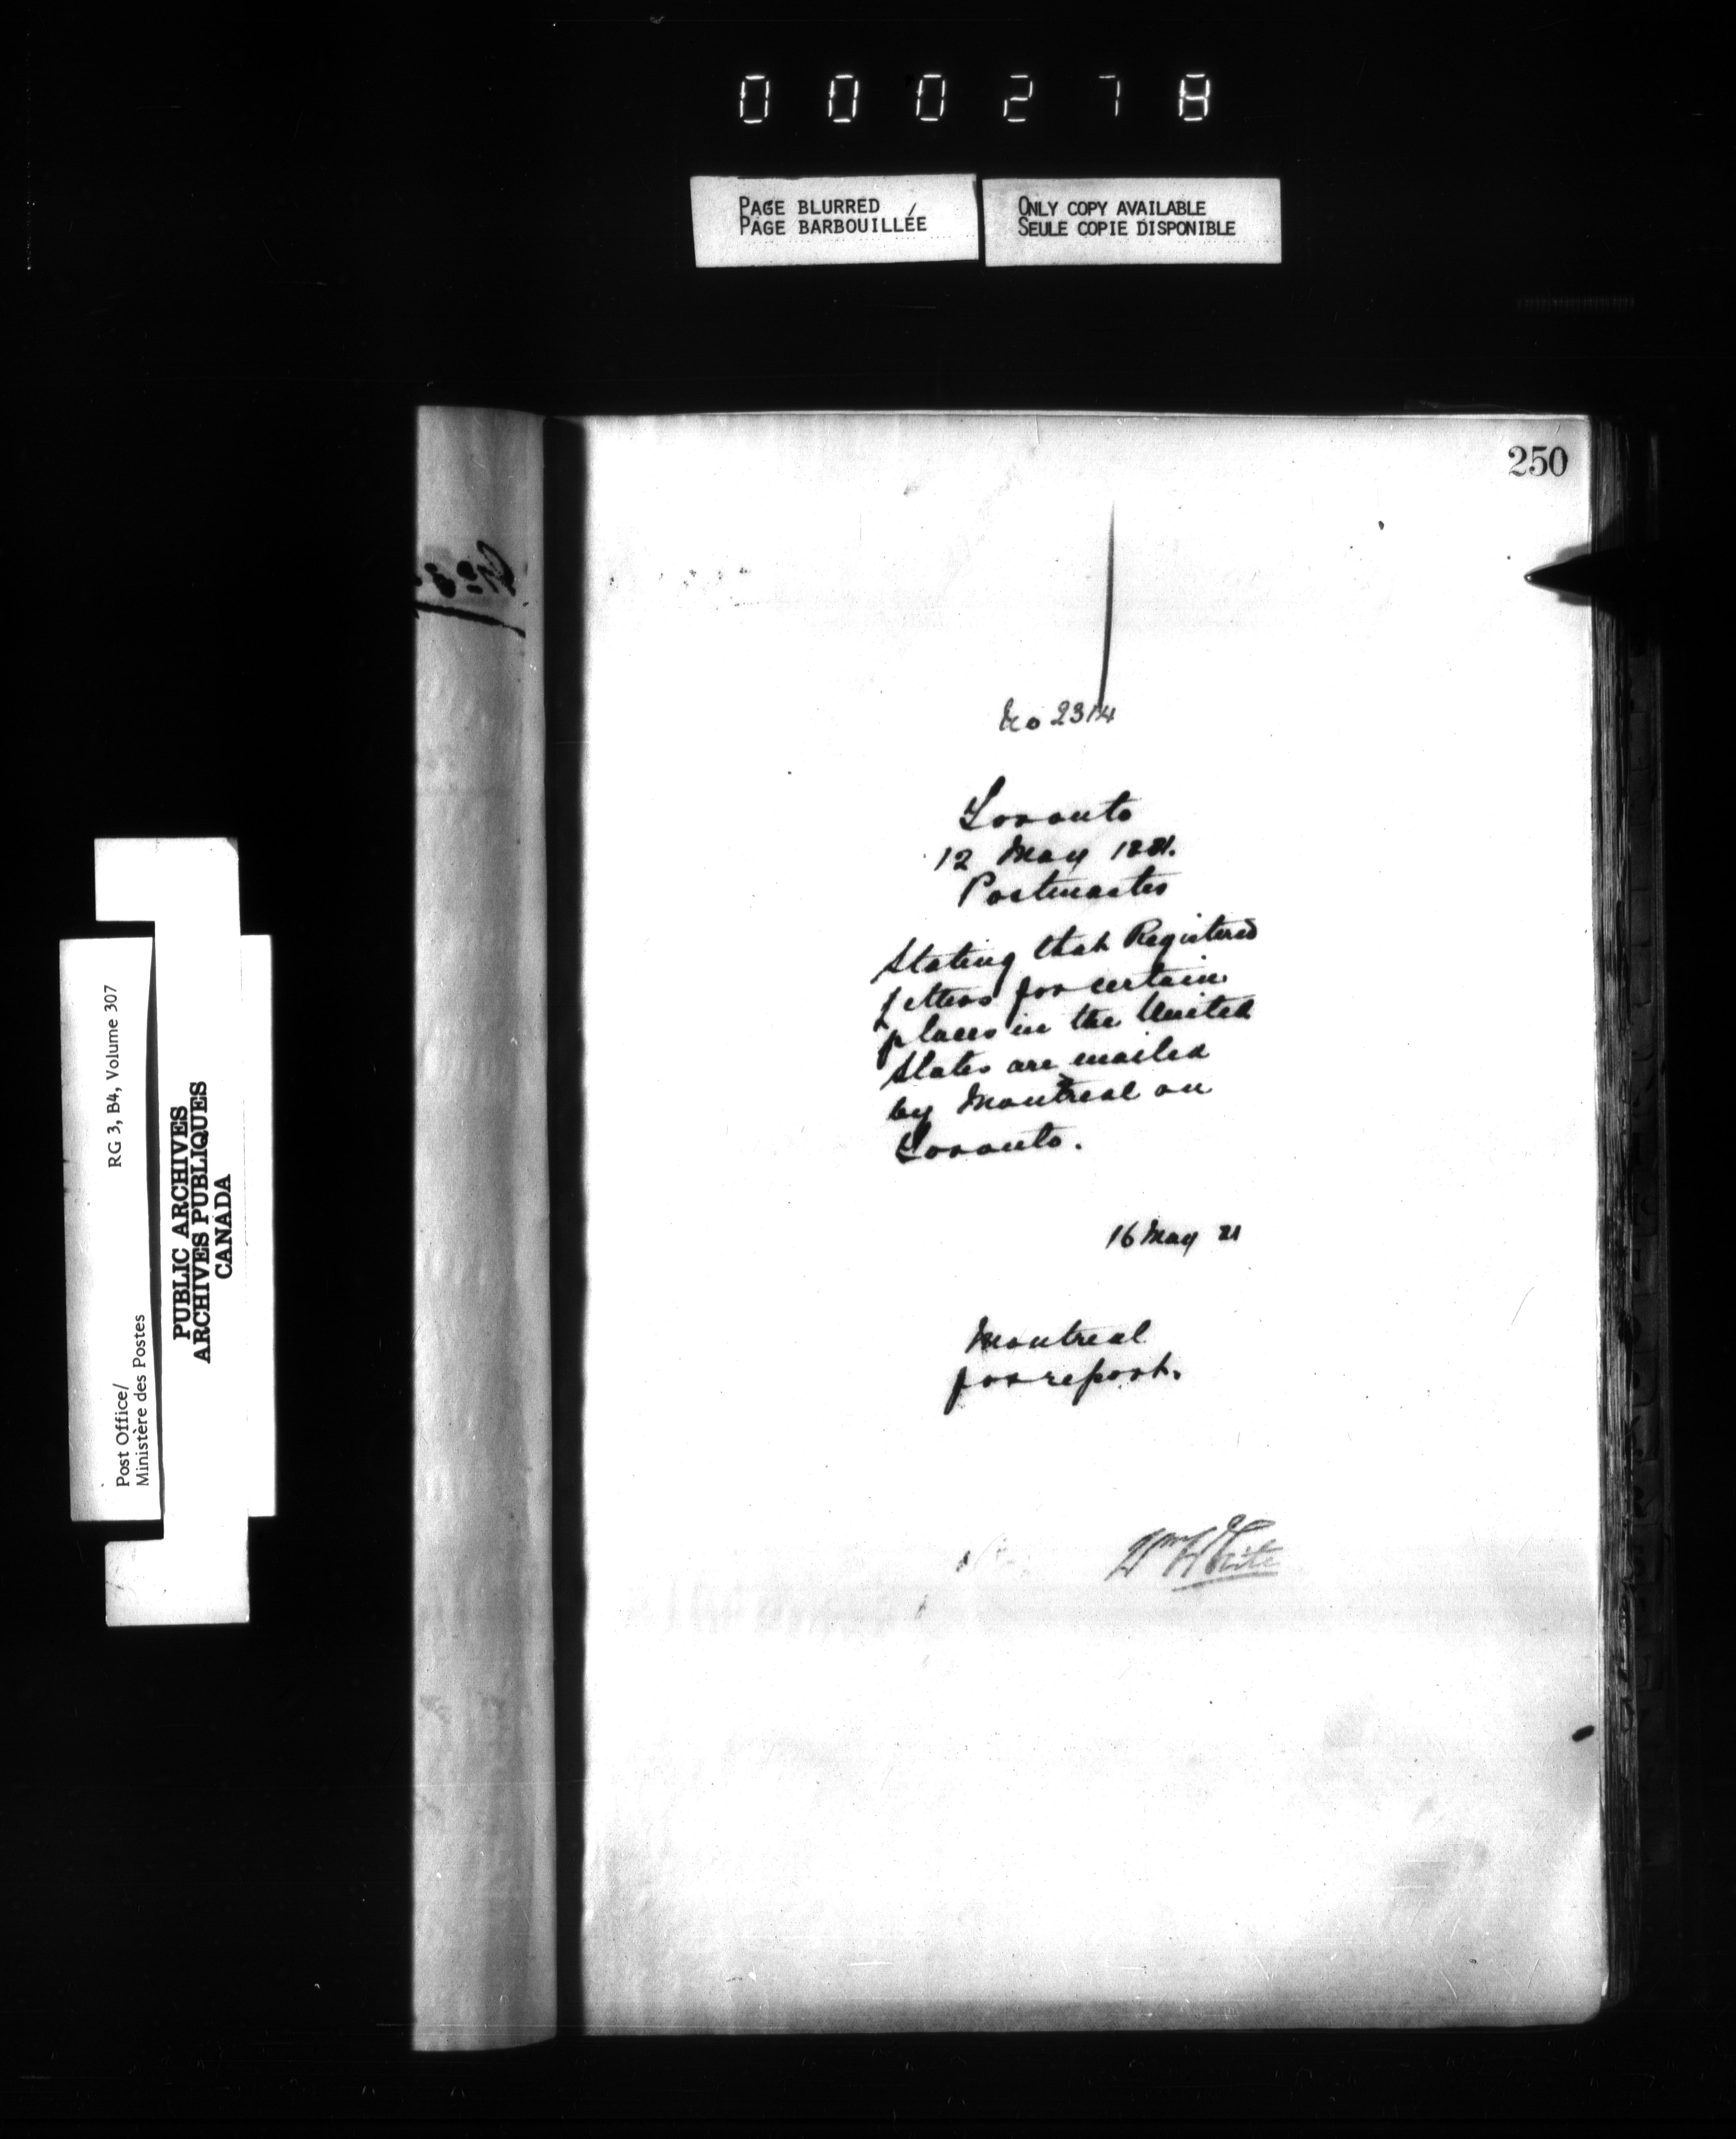 000278
PAGE BLURRED
PAGE BARBOUILLÉE
ONLY COPY AVAILABLE
SEULE COPIE DISPONIBLE
250
No 2314
Toronto
12 May 1881.
Postmaster
Stating that Registered
Letters for certain
places in the United
States are mailed
by Montreal on
Toronto.
16 May 81
Montreal
for report.
Wm White
Post Office/
Ministère des Postes
RG 3, B4, Volume 307
PUBLIC ARCHIVES
ARCHIVES PUBLIQUES
CANADA